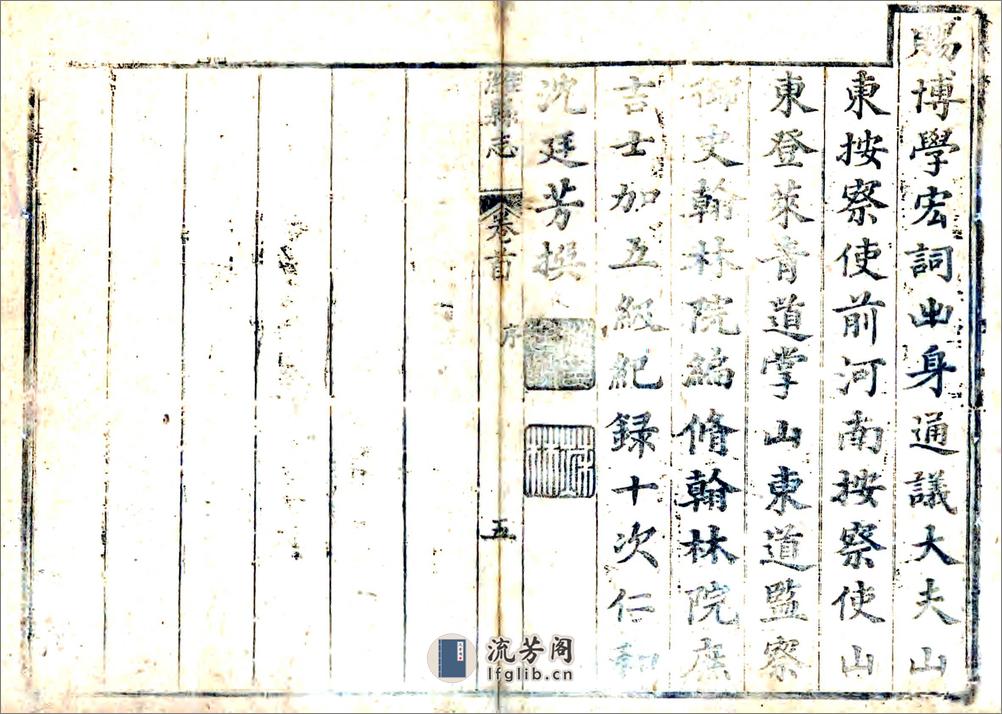 賜博學宏詞出身通議大夫山
東按察使前河南按察使山
東登萊青道掌山東道監察
御史翰林院編脩翰林院庶
吉士加五級紀録十次仁和
沈廷芳撰
濰縣志
卷首
序
五
流芳阁
lfglib.cn